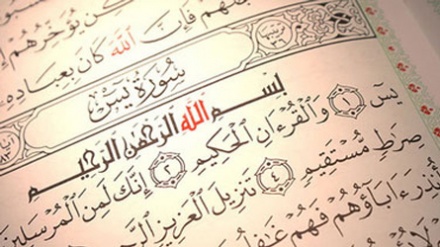 يُؤَخِّرُهُمْ
فَإِنَّ اللَّهَ كَانَ بِعِبَادِهِ
سُورَةُ يس
بِسْمِ اللَّهِ الرَّحْمَٰنِ الرَّحِيمِ
يسٓ ١ وَالْقُرْءَانِ الْحَكِيمِ ٢ إِنَّكَ لَمِنَ الْمُرْسَلِينَ
صِرَٰطٍ مُّسْتَقِيمٍ ٤ تَنزِيلَ الْعَزِيزِ الرَّحِ
ءَابَآؤُهُمْ فَهُمْ غَٰفِلُ